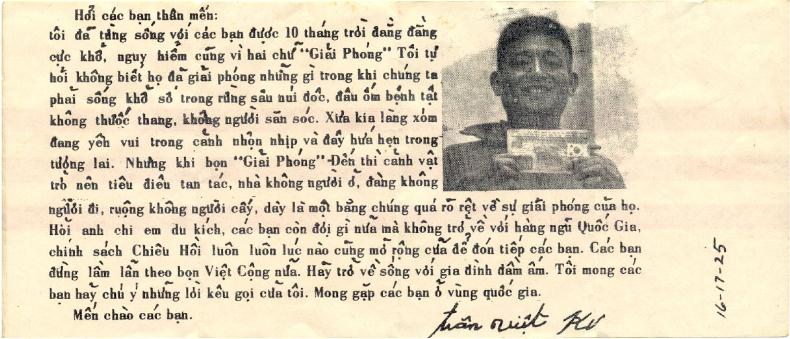 Hỡi các bạn thân mến:
tôi đã từng sống với các bạn được 10 tháng trời đằng đẵng
cực khổ, nguy hiểm cũng vì hai chữ "Giải Phóng" Tôi tự
hỏi không biết họ đã giải phóng những gì trong khi chúng ta
phải sống khổ sở trong rừng sâu núi dốc, đâu ốm bệnh tật
không thuốc thang, không người săn sóc. Xưa kia làng xóm
đang yên vui trong cảnh nhộn nhịp và đầy hứa hẹn trong
tương lai. Nhưng khi bọn "Giải Phóng" Đến thì cảnh vật
trở nên tiêu điều tan tác, nhà không người ở, đàng không
người đi, ruộng không người cấy, dây là một bằng chứng quá rõ rệt về sự giải phóng của họ.
Hỡi anh chi em du kích, các bạn còn đợi gì nữa mà không trở về với hàng ngũ Quốc Gia,
chính sách Chiêu Hồi luôn luôn lúc nào cũng mở rộng cửa để đón tiếp các bạn. Các bạn
đừng lầm lẫn theo bọn Việt Cộng nữa. Hãy trở về sống với gia đình đầm ấm. Tôi mong các
bạn hãy chú ý những lời kêu gọi của tôi. Mong gặp các bạn ở vùng quốc gia.
Mến chào các bạn.
16-17-25